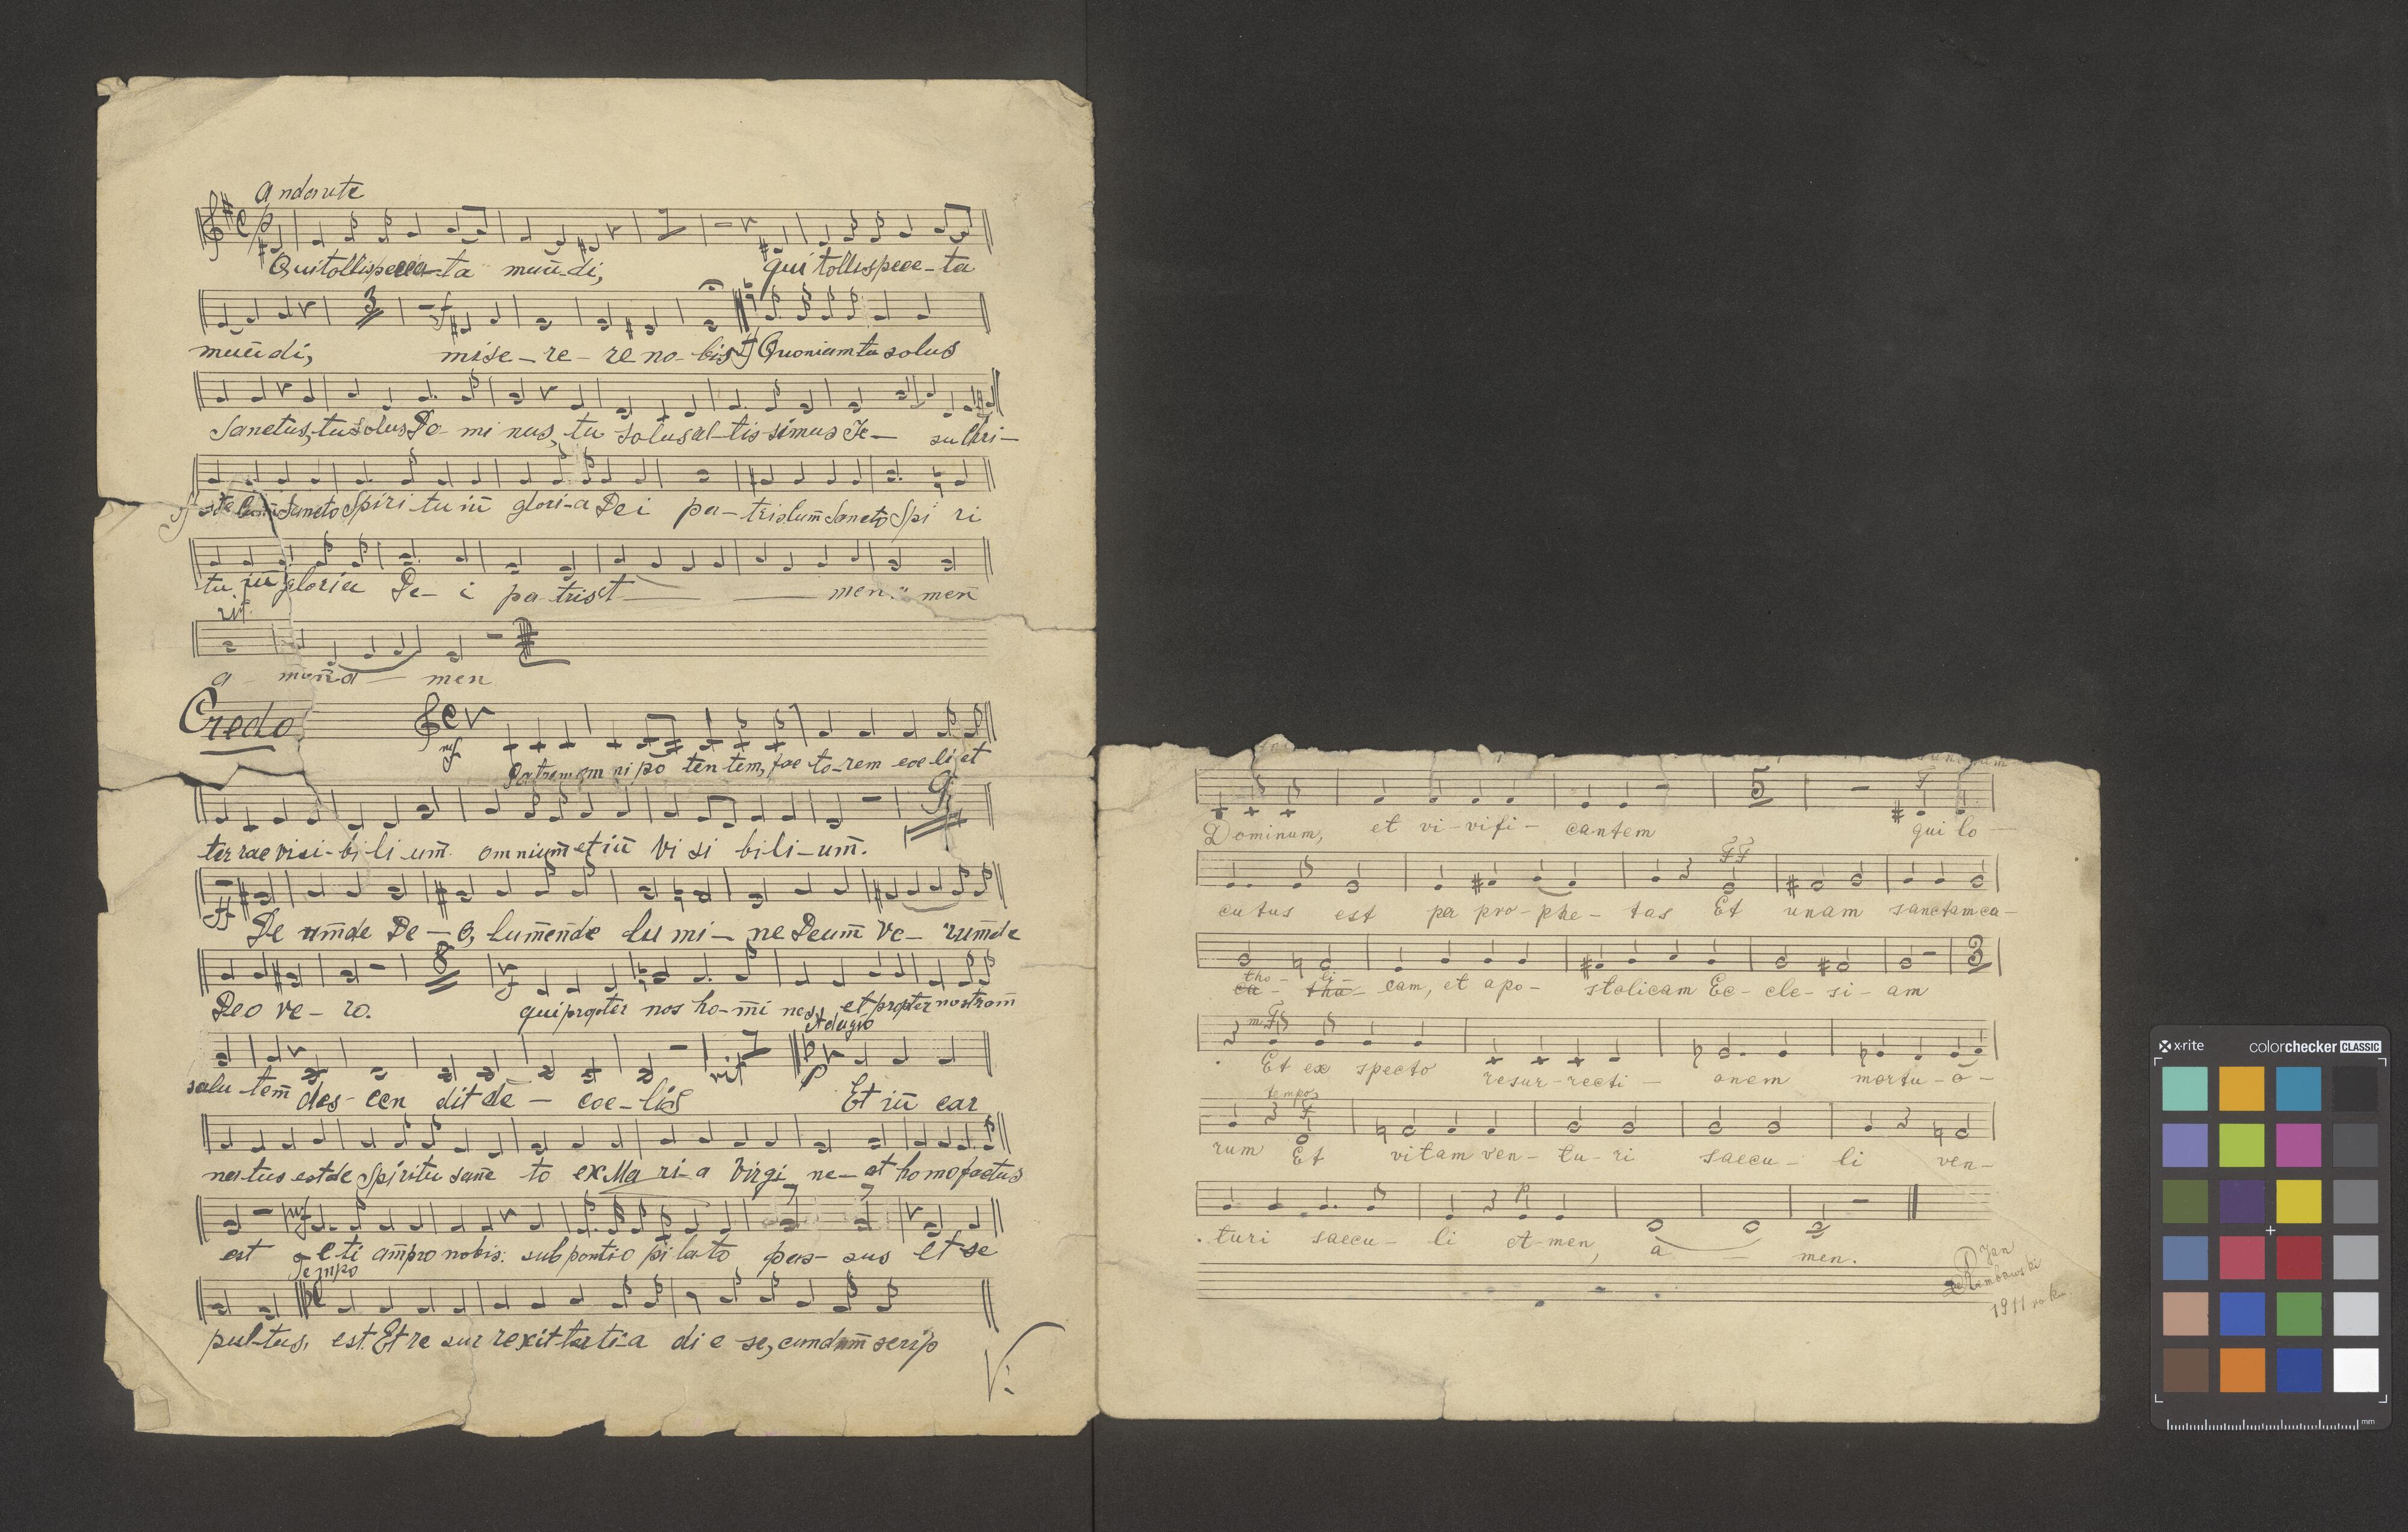 Andante
p
Qui tollis pecca-ta mun̄-di, qui tollis pecc-ta
3
f
mun̄di, mise-re-re no-bis ff Quoniam tu solus
Sanctus, tu solus Do-mi nus, tu solus al-tissimus Je- su Chri-
ff ste Cum̄ Sancto Spiri-tu in̄ glori-a Dei pa-tris Cum̄ Sancto Spi ri
tu in̄ gloria De-i pa tris men men̄
rit
a men̄ a men
Credo
mf
Patrem om ni po ten tem, fac to-rem coe-li et
9
ter rae visi-bi li um̄. omnium̄ et in̄ vi si bili-um̄.
ff
De um̄ de De-o, lum̄en̄ de lu mi-ne Deum̄ ve-rum̄ de
8
f
Deo ve-ro. qui propter nos ho-m̄i nes, et propter nostram̄
Adagio
rit 7
p
salu-tem̄ des-cen dit de - coe-lis Et in̄ car
natus est de Spiritu sanc to ex Ma ri-a Virgi ne-et homo factus
mf
est e ti am̄ pro nobis: sub pontio pi lato pas-sus et se
Tempo
pul-tus, est. Et re sur rexit terti-a di e se, cundum̄ scrip
V.
5
F
Dominum, et vi-vifi-cantem qui lo-
FF
cutus est per pro-phe-tas Et unam sanctam ca-
3
tho- li
ca- tho- cam, et apo-stolicam Ec-cle-si-am
mF
Et ex specto resur-recti-onem mortu-o-
tempo
F
rum Et vitam ven-tu-ri saecu-li ven-
p
turi saecu-li et-men, a - men.
Jan
Rembowski
1911 roku
x-rite colorchecker CLASSIC
mm